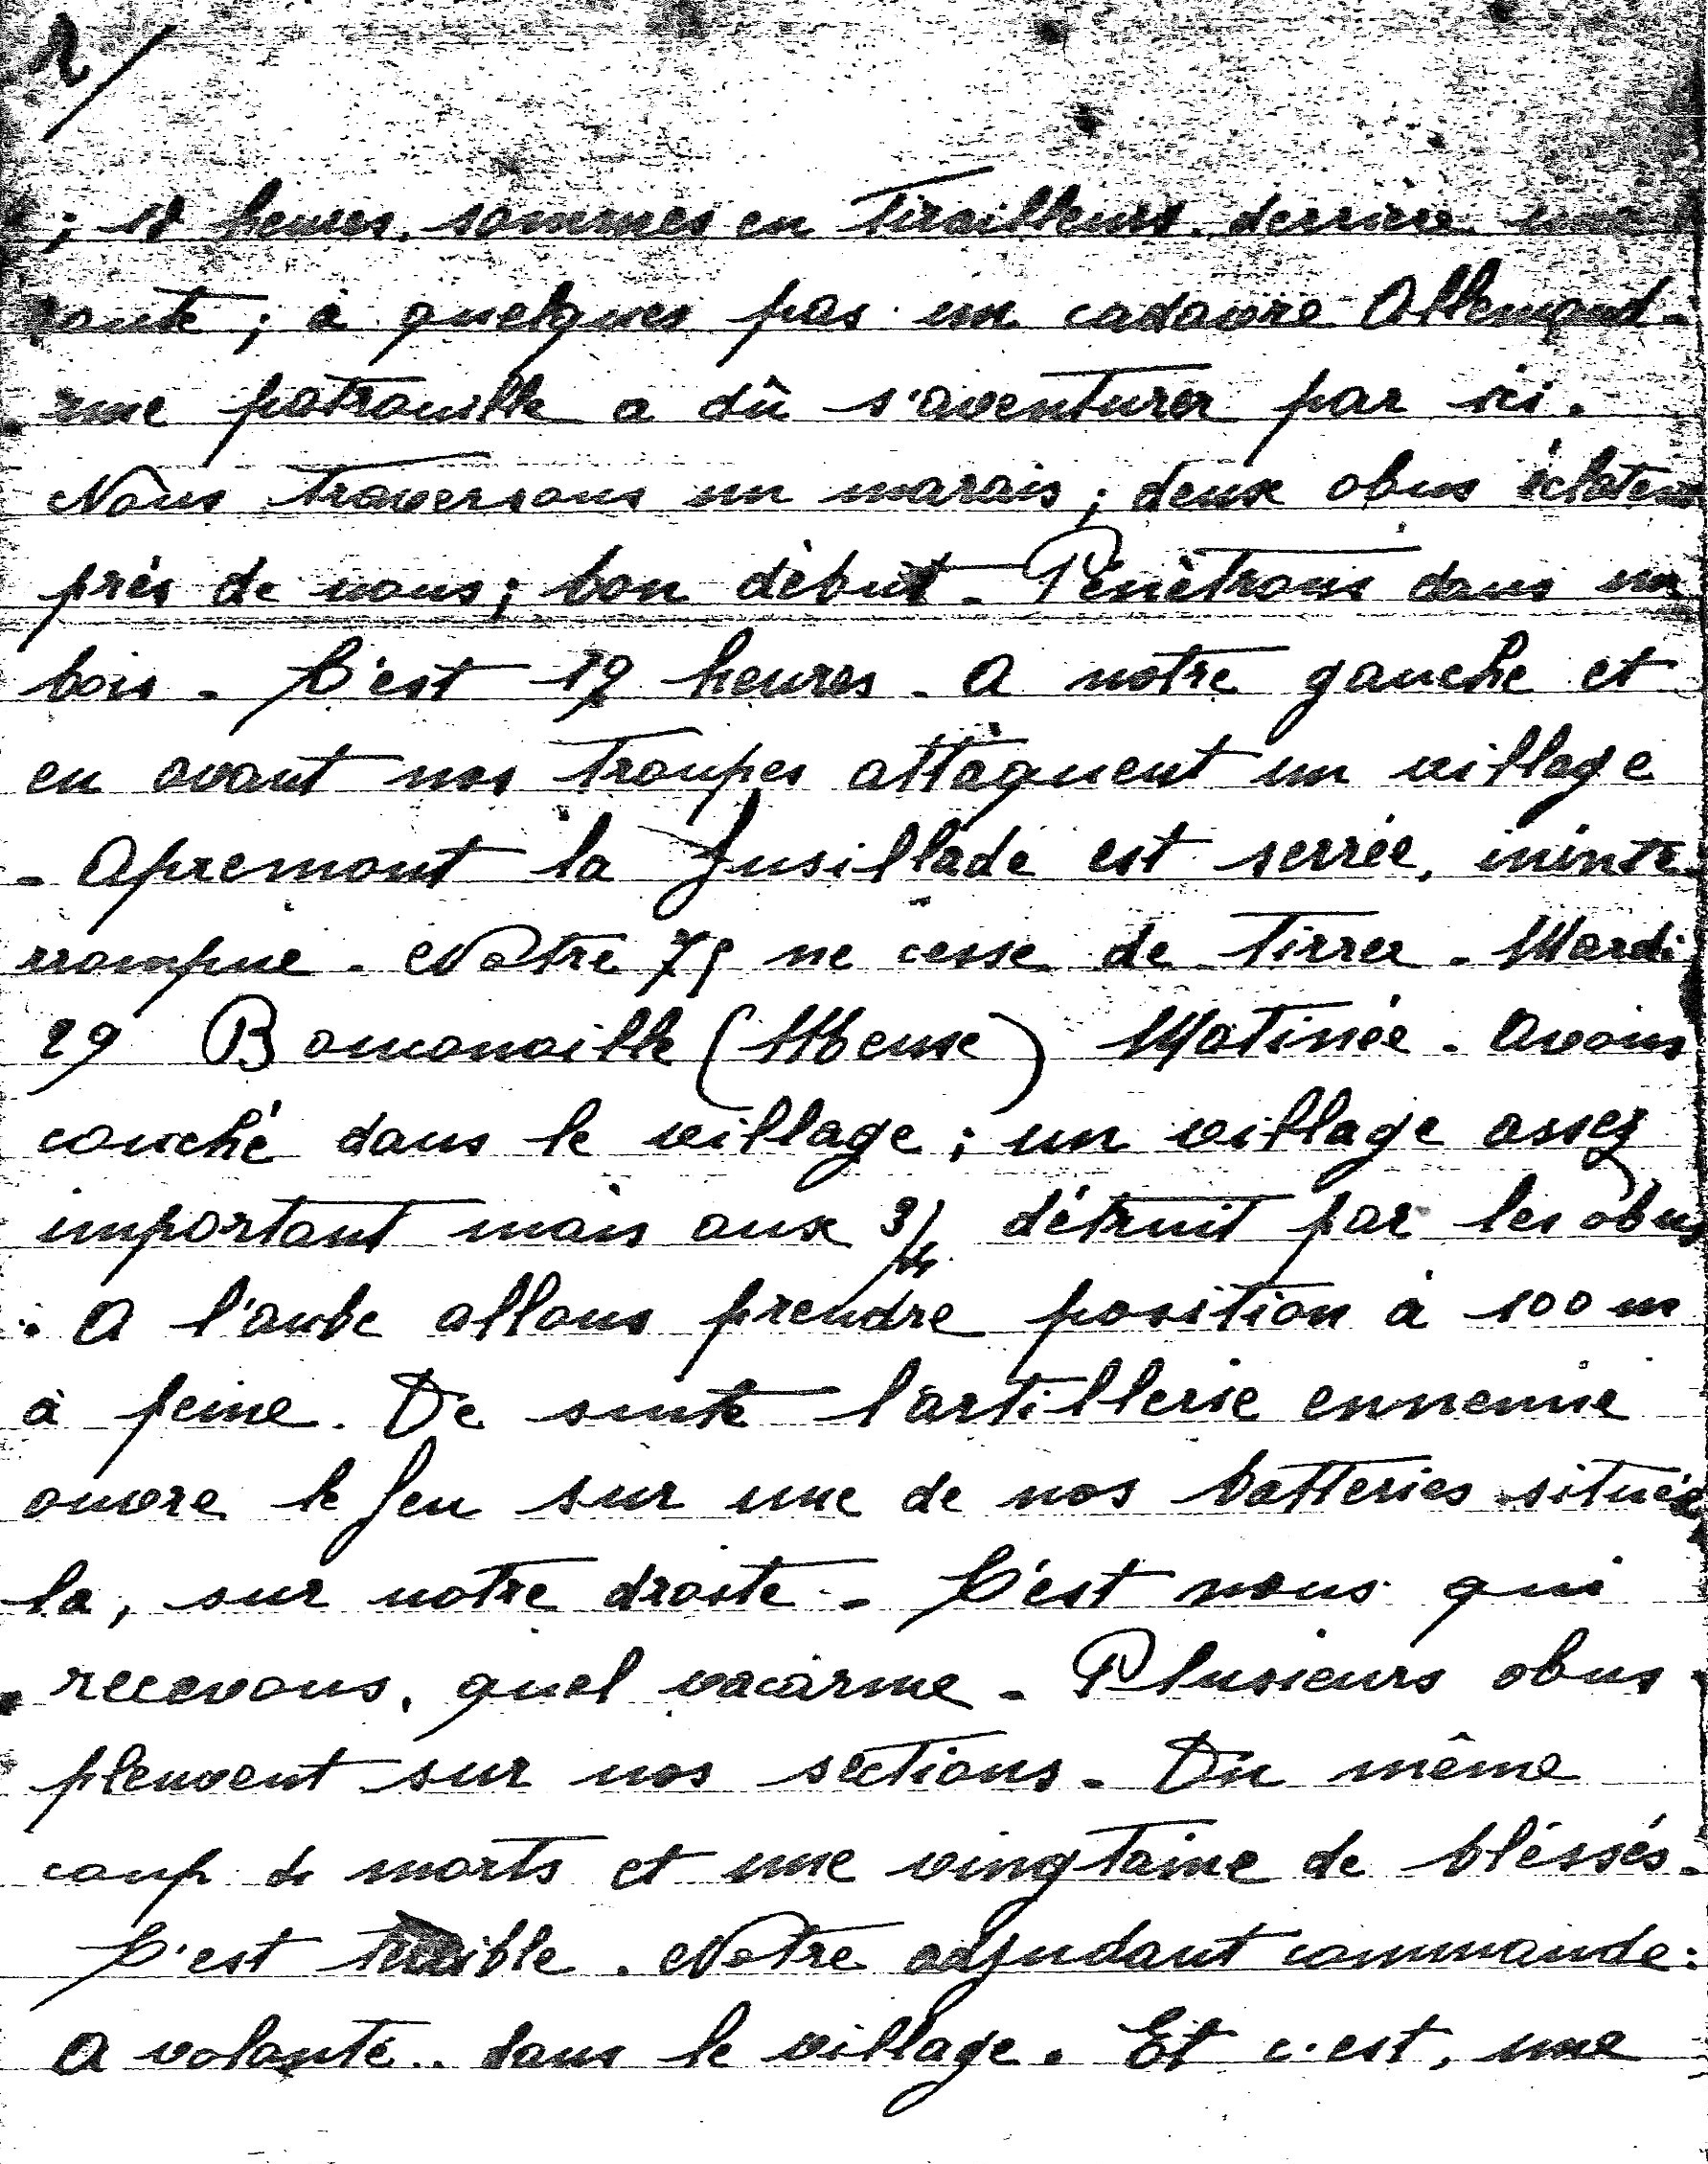 2/
; 18 heures. sommes en tirailleurs. derriere une
route ; à quelques pas un cadavre Allemand -
une patrouille a dû s'aventurer par ici.
Nous traversons un marais ; deux obus éclatent
près de nous ; bon début - Pénètrons dans un
bois - C'est 19 heures - A notre gauche et
en avant nos troupes attaquent un village
- Apremont la fusillade est serrée, ininte
rrompue. Notre 75 ne cesse de tirrer. Mardi
29 (Meuse) Matinée. Avons
couché dans le village ; un village assez
important mais aux 3/4 détruit par les obus
. A l'aube allons prendre position à 100 m
à peine. De suite l'artillerie ennemie
ouvre le feu sur une de nos batteries située
la, sur notre droite - C'est nous qui
recevons, quel vacarme - Plusieurs obus
pleuvent sur nos sections - Du même
coup de morts et une vingtaine de bléssés -
C'est terrible. Notre adjudant commande :
A volonté.. dans le village. Et c'est, une